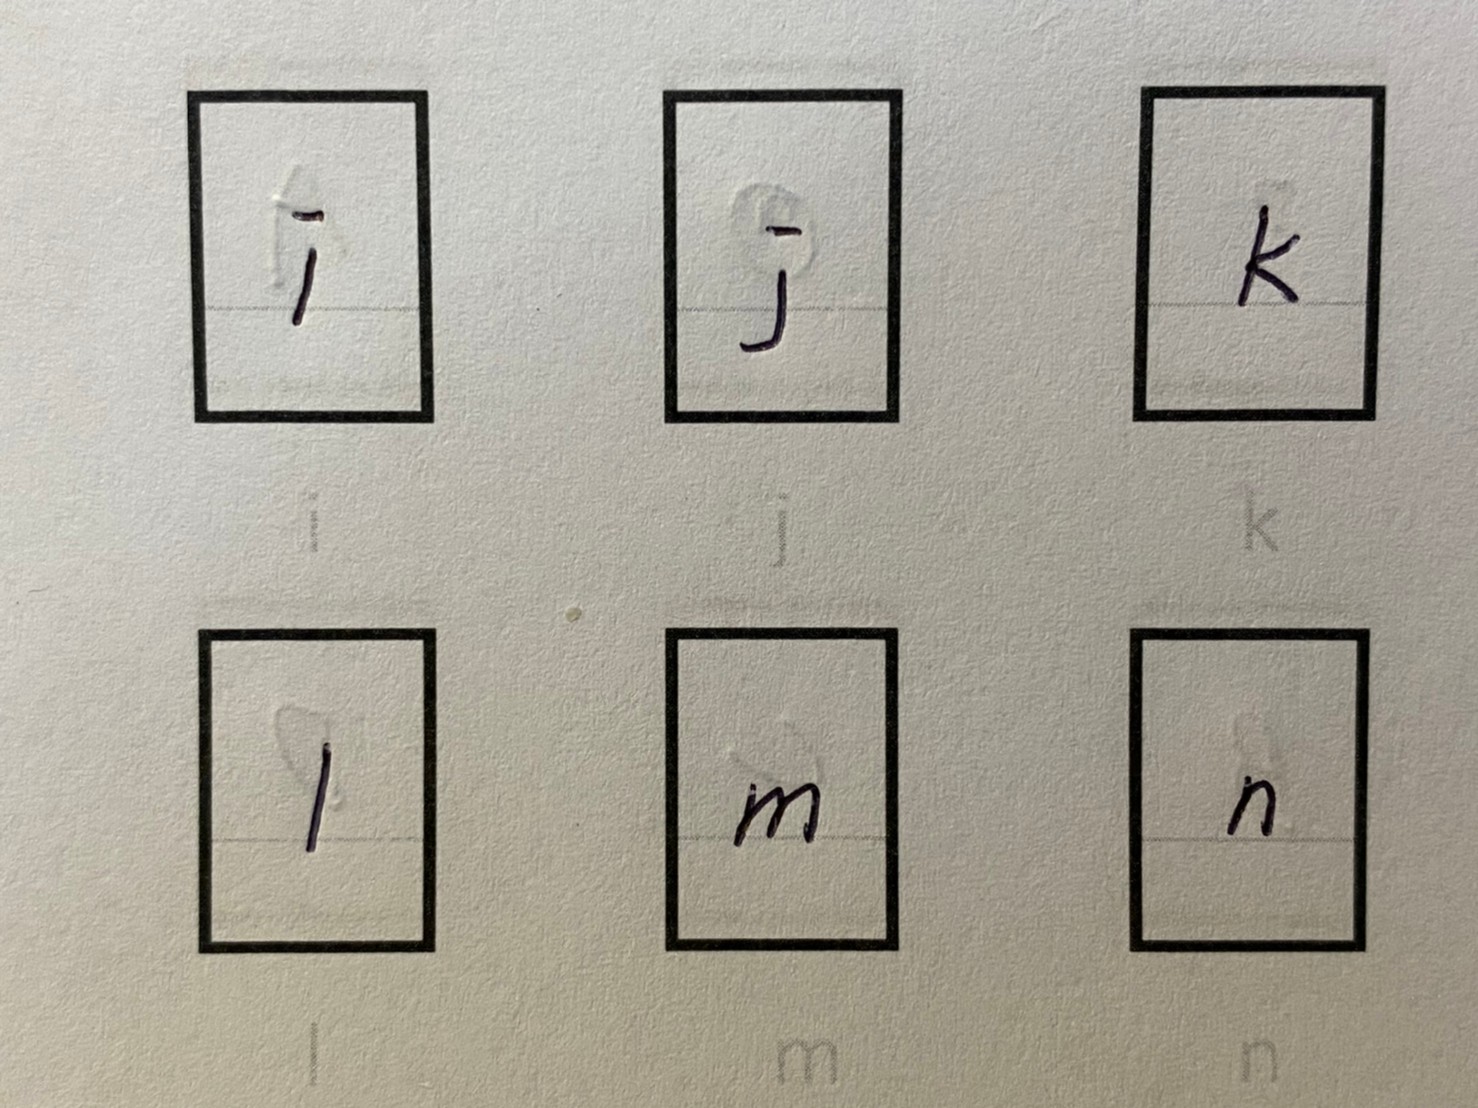 i j k
i j k
l m n
l m n